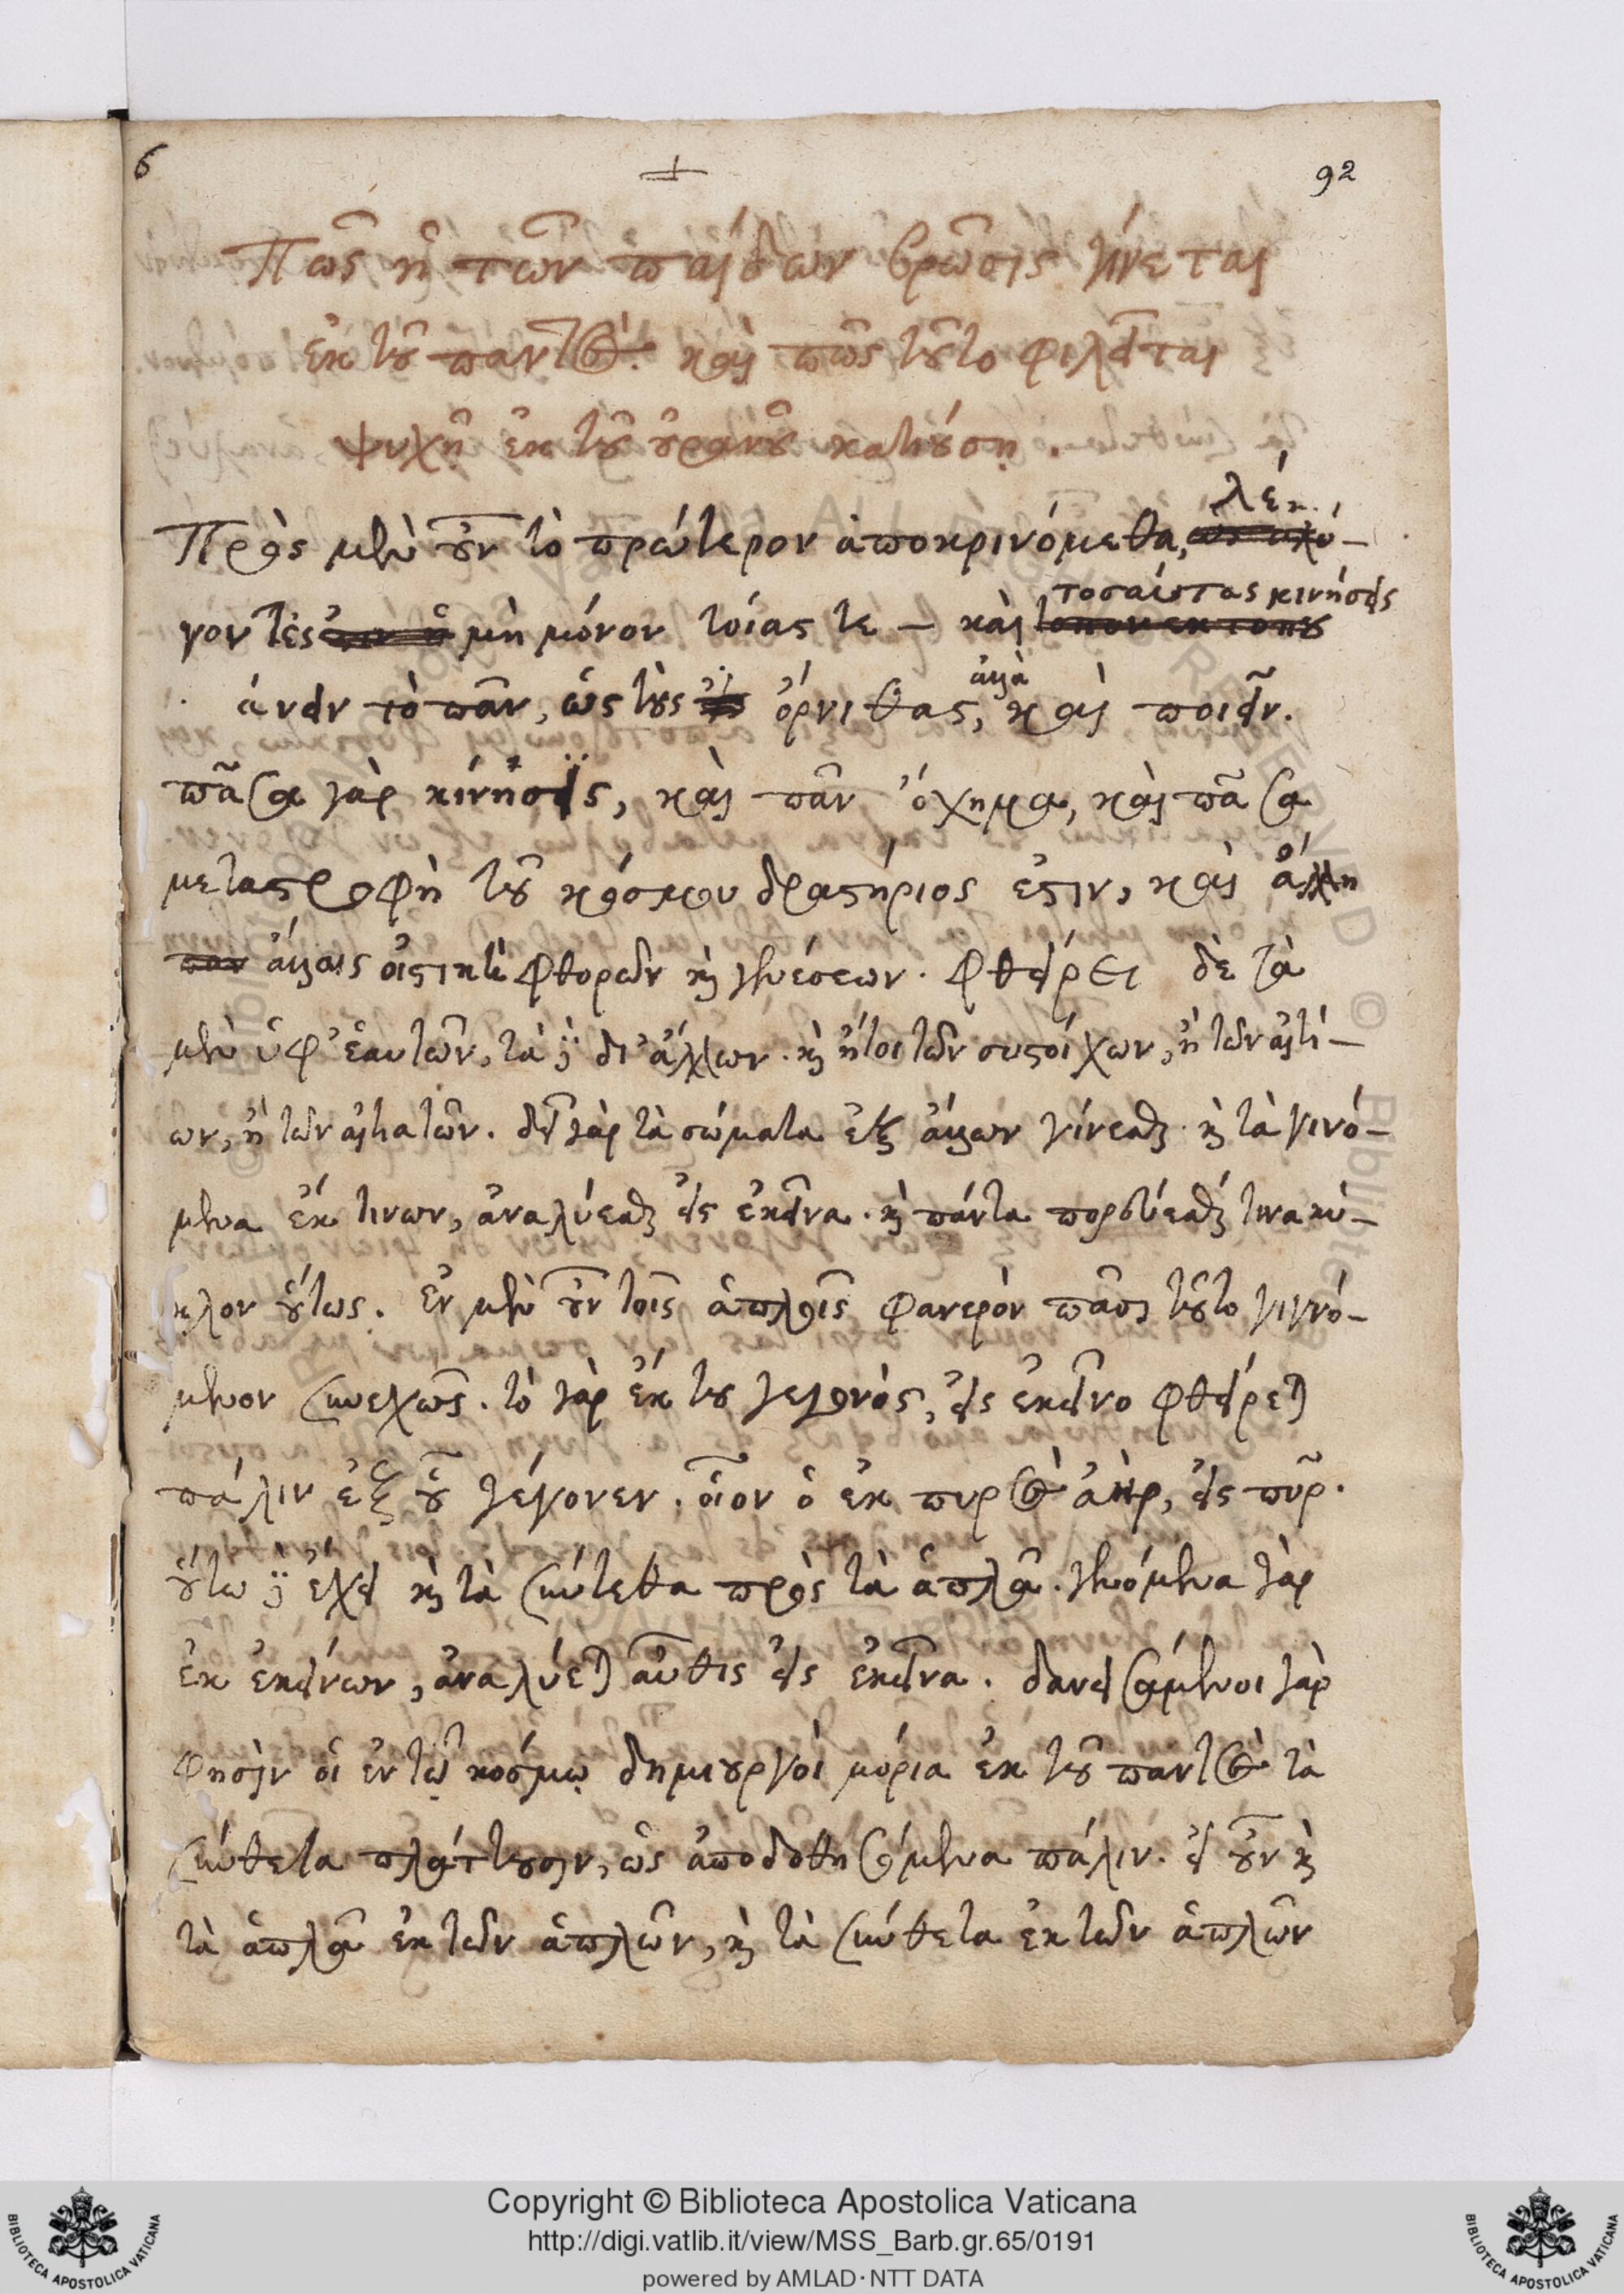 6
92
Πῶς ἡ τῶν παίδων βρῶσις γίνεται
ἐκ τοῦ παντός. καὶ πῶς τοῦτο φιλεῖται
ψυχῇ ἐκ τοῦ οὐρανοῦ κατιούσῃ.
λέ
Πρὸς μὲν οὖν τὸ πρώτερον ἀποκρινόμεθα,
τοσαύτας κινήσεις
γοντες μὴ μόνον τοίας τε καὶ
ἀλλὰ
τὸ πᾶν, ὡς τοὺς ὄρνιθας, καὶ ποιεῖν.
πᾶσα γὰρ κίνησις, καὶ πᾶν ὄχημα, καὶ πᾶσα
μεταστροφὴ τοῦ κόσμου δραστήριος ἐστιν, καὶ ἄλλη
ἄλλαις φθορῶν καὶ γενέσεων. φθείρει δὲ τὰ
μὲν ὑφ' ἑαυτῶν, τὰ δὲ δι' ἄλλων. καὶ ἤτοι τῶν συστοίχων, ἢ τῶν αἰτί-
ων, ἢ τῶν αἰτιατῶν. δεῖ γὰρ τὰ σώματα ἐξ ἄλλων γίνεσθαι. καὶ τὰ γινό-
μενα ἔκ τινων, ἀναλύεσθαι εἰς ἐκεῖνα. καὶ πάντα πορεύεσθαί τινα κύ-
κλον οὕτως. ἐν μὲν οὖν τοῖς ἁπλοῖς φανερὸν πᾶσι τοῦτο γιγνό-
μενον συνεχῶς. τὸ γὰρ ἔκ του γεγονός, εἰς ἐκεῖνο φθείρεται
πάλιν ἐξ οὗ γέγονεν. οἷον ὁ ἐκ πυρὸς ἀὴρ, εἰς πῦρ.
οὕτω δὲ ἔχει καὶ τὰ σύνθετα πρὸς τὰ ἁπλᾶ. γενόμενα γὰρ
ἐκ ἐκείνων, ἀναλύεται αὖθις εἰς ἐκεῖνα. δανεισάμενοι γὰρ
φησὶν οἱ ἐν τῷ κόσμῳ δημιουργοὶ μόρια ἐκ τοῦ παντὸς τὰ
σύνθετα πλάττουσιν, ὡς ἀποδοθησόμενα πάλιν. εἰ οὖν καὶ
τὰ ἁπλᾶ ἐκ τῶν ἁπλῶν, καὶ τὰ σύνθετα ἐκ τῶν ἁπλῶν
Copyright © Biblioteca Apostolica Vaticana
http://digi.vatlib.it/view/MSS_Barb.gr.65/0191
powered by AMLAD·NTT DATA
BIBLIOTECA APOSTOLICA VATICANA
BIBLIOTECA APOSTOLICA VATICANA